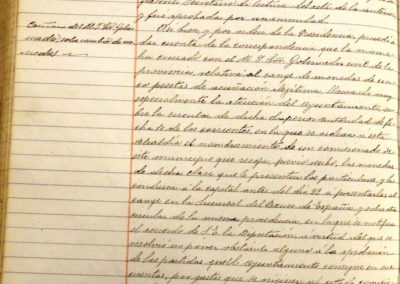 infrascrito Secretario di lectura del acta de la anterior
y fue aprobada por unanimidad.
Circular del M. I. Sor. Gober-
nador, sobre cambio de mo-
nedas.
bien y por orden de la Presidencia, procedí a
dar cuenta de la correspondencia que la misma
ha cruzado con el M. I. Sor. Gobernador civil de la
provincia, relativa al cange de monedas de cin-
co pesetas de acuñación ilegítima. Llamando muy
especialmente la atención del Ayuntamiento so-
bre la circular de dicha Superior autoridad de fe-
cha de los corrientes, en la que se ordena a esta
alcaldía el nombramiento de un comisionado de
este municipio que recoja, previo recibo, las monedas
de dicha clase que le presenten los particulares, y las
conduzca a la capital antes del día 22 a presentarlas al
cange en la Sucursal del Banco de España, y sobre otra
circular de la misma procedencia, en la que se notifica
el acuerdo de S. E. la Diputación, a virtud del que se
resolvió no poner obstáculo alguno a la aprobación
de las partidas que el Ayuntamiento consigne en sus
cuentas, por gastos que se